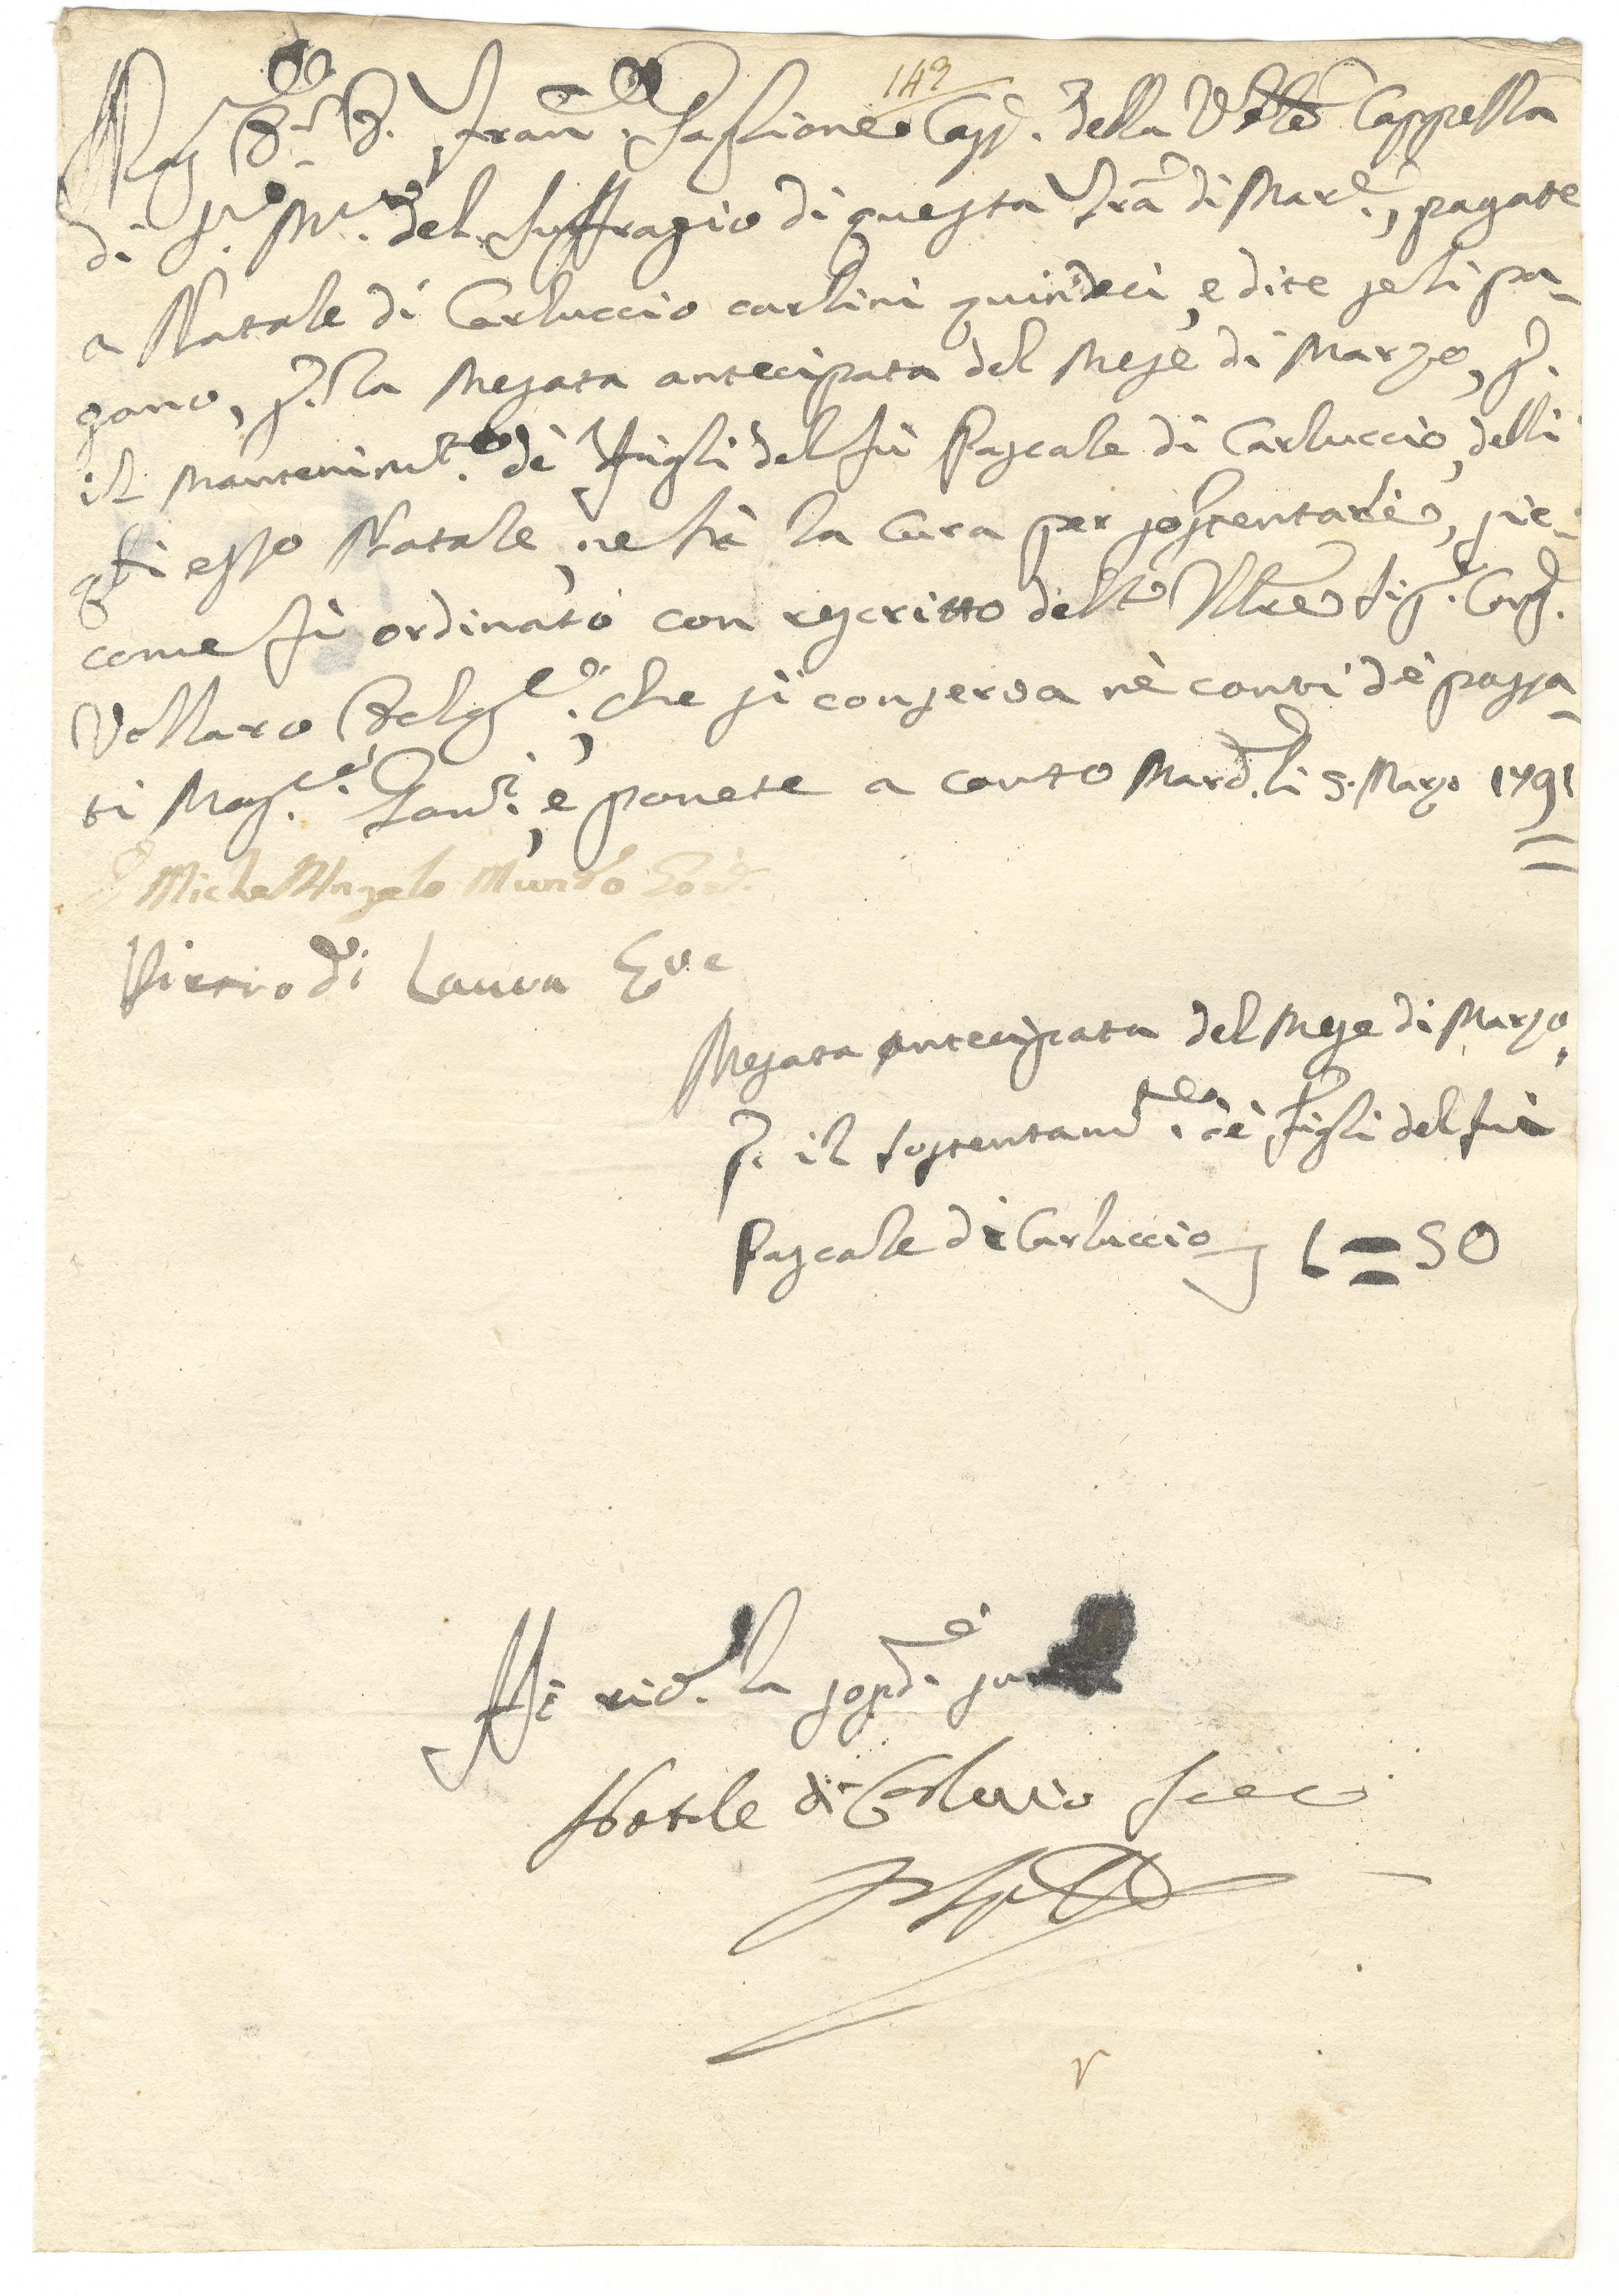 149
Mag.co D.r D. Fran.co Taglione Cass. della Ven.le Cappella
di S.a M.a del Suffragio di questa Trã di Mar.e, pagate
a Natale di Carluccio carlini quindeci, e dite se li pa-
gano, p. la Mesata antecipata del Mese di Marzo, p.
il mantenim.to dè Figli del fù Pascale di Carluccio, delli
qli esso Natale, ne hà la Cura per sostentarli, sic-
come fù ordinato con rescritto dell' Ill.re Sig.r Cons.
Vollaro Deleg.to, che si conserva nè conti dè passa-
ti Mag.ci Raz.li, e ponete a conto Mard. li 5. Marzo 1791
Michel'Angelo Mundo
Pietro di Laura
Mesata antecipata del Mese di Marzo
p. il sostentam.to dè figli del fù
Pascale di Carluccio 1=50
Hò ric.o la sopd.a
Natale di Carluccio